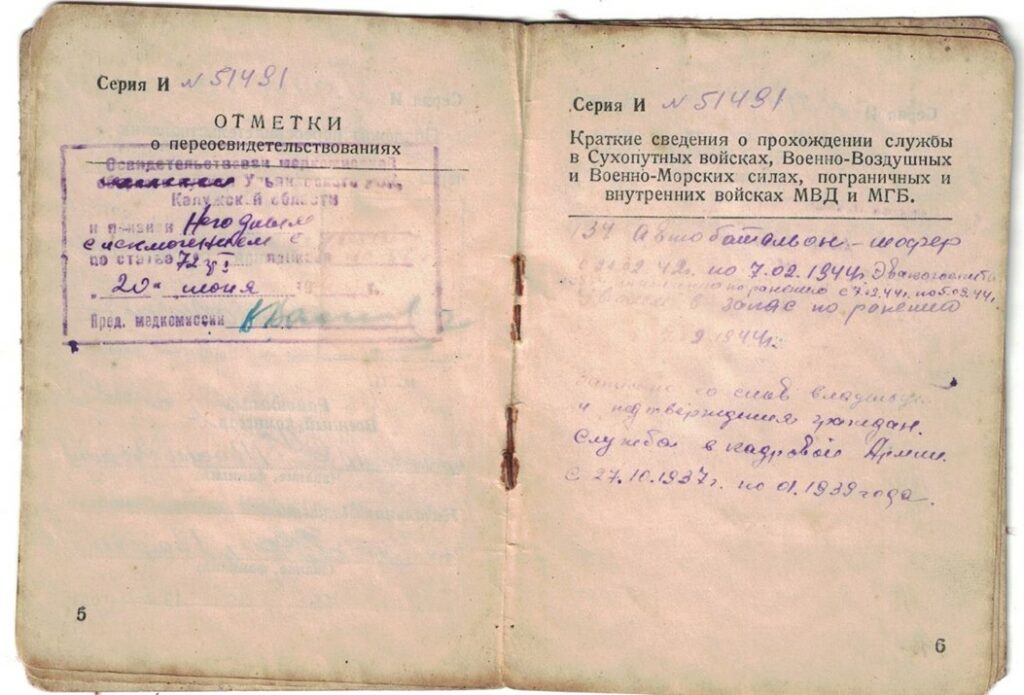 Серия И № 51491
ОТМЕТКИ
о переосвидетельствованиях
Освидетельствован медкомиссией
Ульяновского
Калужской области
и признан Негодным
с исключением с
по статье 72 гр. I приказа
"20" июня 19 г.
Пред. медкомиссии
5
Серия И № 51491
Краткие сведения о прохождении службы
в Сухопутных войсках, Военно-Воздушных
и Военно-Морских силах, пограничных и
внутренних войсках МВД и МГБ.
134 Автобатальон - шофер
02.42г. по 7.02.1944г. Эвакогоспиталь
по ранению с 7.02.44г. по 5.09.44г.
Уволен в запас по ранению
9.1944г.
Записано со слов владельца
и подтверждения граждан.
Служба в кадровой Армии
с 27.10.1937г. по 01.1939 года.
6